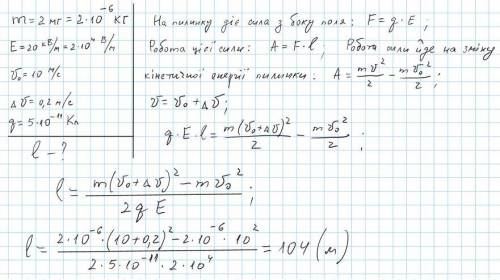 m = 2 мг = 2·10⁻⁶ кг
E = 20 кВ/м = 2·10⁴ В/м
v₀ = 10 м/с
Δv = 0,2 м/с
q = 5·10⁻¹¹ Кл
l - ?
На пилинку діє сила з боку поля: F = q·E;
Робота цієї сили: A = F·l; Робота сили йде на зміну
кінетичної енергії пилинки: A = mv²/2 − mv₀²/2;
v = v₀ + Δv;
q·E·l = m(v₀+Δv)²/2 − mv₀²/2;
l = (m(v₀+Δv)² − mv₀²)/(2qE);
l = (2·10⁻⁶·(10+0,2)² − 2·10⁻⁶·10²)/(2·5·10⁻¹¹·2·10⁴) = 104 (м)